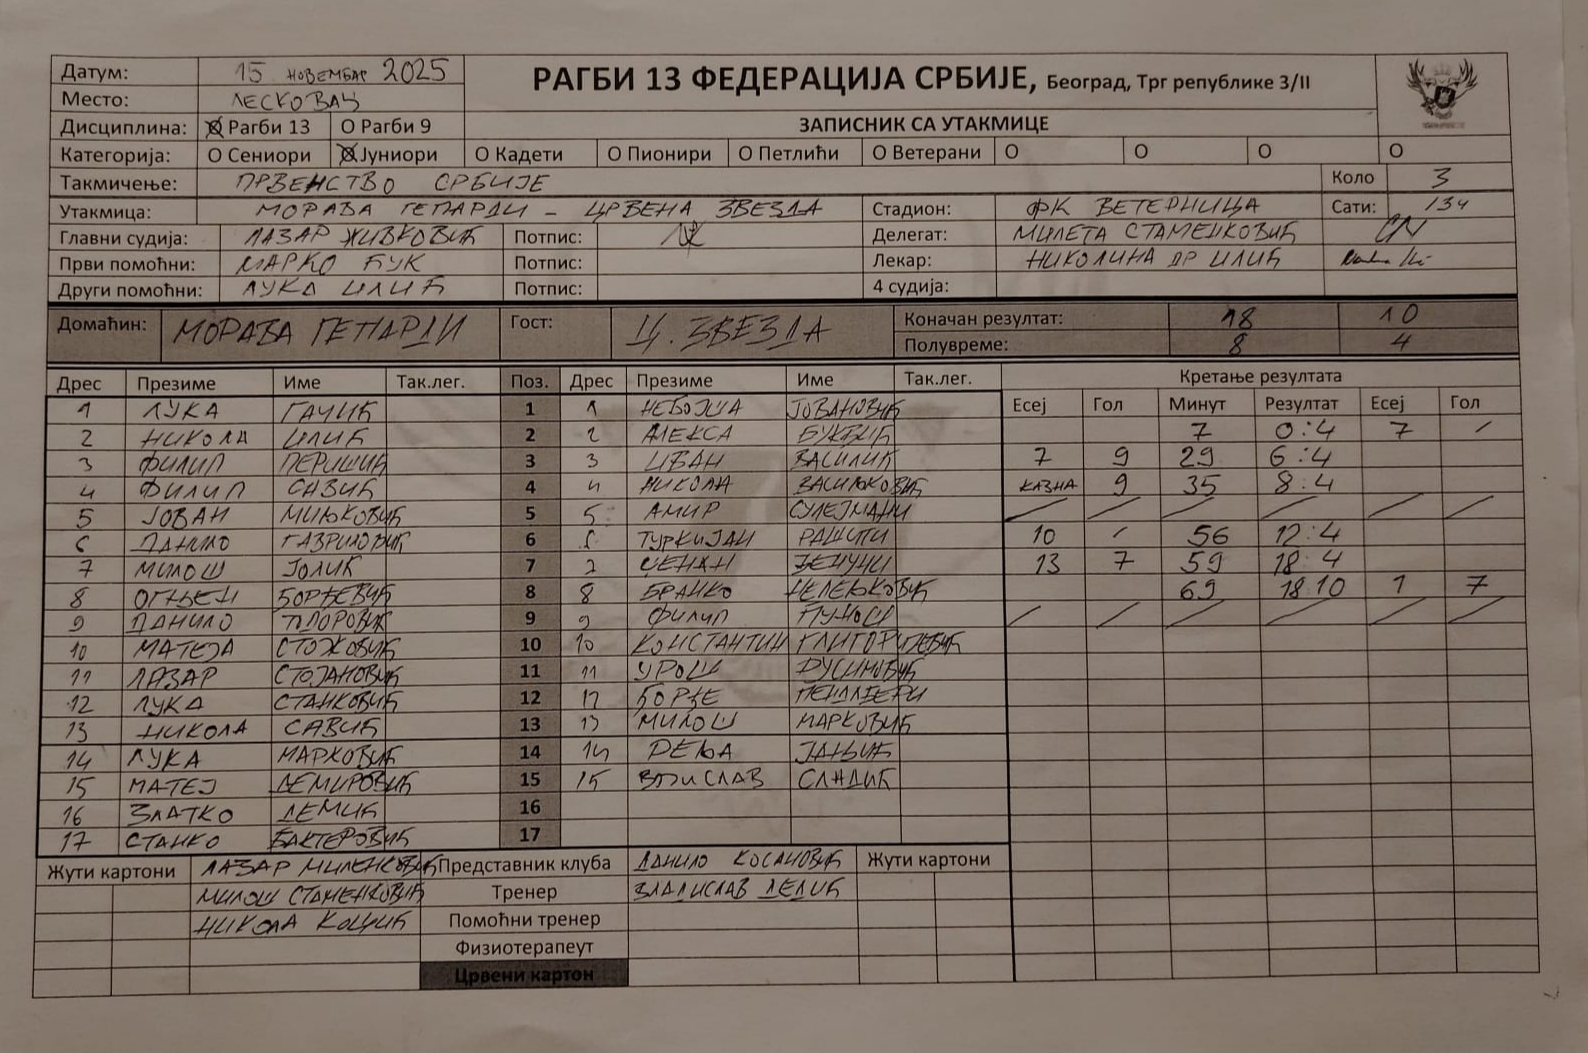 Датум: 15 НОВЕМБАР 2025
РАГБИ 13 ФЕДЕРАЦИЈА СРБИЈЕ, Београд, Трг републике 3/II
Место: ЛЕСКОВАЦ
Дисциплина: Рагби 13 О Рагби 9
ЗАПИСНИК СА УТАКМИЦЕ
Категорија: О Сениори Јуниори О Кадети О Пионири О Петлићи О Ветерани О О О О
Такмичење: ПРВЕНСТВО СРБИЈЕ Коло 3
Утакмица: МОРАВА ГЕПАРДИ - ЦРВЕНА ЗВЕЗДА Стадион: ФК ВЕТЕРНИЦА Сати: 13ч
Главни судија: ЛАЗАР ЖИВКОВИЋ Потпис: Делегат: МИЛЕТА СТАМЕНКОВИЋ
Први помоћни: МАРКО ЋУК Потпис: Лекар: НИКОЛИНА ДР ИЛИЋ
Други помоћни: ЛУКА ИЛИЋ Потпис: 4 судија:
Домаћин: МОРАВА ГЕПАРДИ Гост: Ц. ЗВЕЗДА Коначан резултат: 18 10
Полувреме: 8 4
Дрес Презиме Име Так.лег. Поз. Дрес Презиме Име Так.лег. Кретање резултата
Есеј Гол Минут Резултат Есеј Гол
1 ЛУКА ГАЧИЋ 1 1 НЕБОЈША ЈОВАНОВИЋ
2 НИКОЛА ИЛИЋ 2 2 АЛЕКСА БУКВИЋ 7 0:4 7 /
3 ФИЛИП ПЕРИШИЋ 3 3 ИВАН ВАСИЛИЋ 7 9 29 6:4
4 ФИЛИП САВИЋ 4 4 НИКОЛА ВАСИЉКОВИЋ КАЗНА 9 35 8:4
5 ЈОВАН МИЉКОВИЋ 5 5 АМИР СУЛЕЈМАНИ / / / / / /
6 ДАНИЛО ГАВРИЛОВИЋ 6 ТУРКИЈАН РАШИТИ 10 / 56 12:4
7 МИЛОШ ЈОЛИЋ 7 7 59 18:4 13 7
8 ОГЊЕН ЂОРЂЕВИЋ 8 8 БРАНКО НЕЛЕЉКОВИЋ 69 18:10 1 7
9 ДАНИЛО 9 9 ФИЛИП / / / / / /
10 МАТЕЈА СТОЈКОВИЋ 10 10 КОНСТАНТИН ГЛИГОРИЈЕВИЋ
11 ЛАЗАР СТОЈАНОВИЋ 11 11 УРОШ
12 ЛУКА СТАНКОВИЋ 12 12 ЂОРЂЕ
13 НИКОЛА САВИЋ 13 13 МИЛОШ МАРКОВИЋ
14 ЛУКА МАРКОВИЋ 14 14 РЕЉА ЈАЊИЋ
15 МАТЕЈ ДЕМИРОВИЋ 15 15
16 ЗЛАТКО ДЕМИЋ 16
17 СТАНКО БАКТЕРОВИЋ 17
Жути картони ЛАЗАР МИЛЕНКОВИЋ Представник клуба ДАНИЛО КОСАНОВИЋ Жути картони
МИЛОШ СТАМЕНКОВИЋ Тренер ВЛАДИСЛАВ ДЕДИЋ
НИКОЛА КОЦИЋ Помоћни тренер
Физиотерапеут
Црвени картон